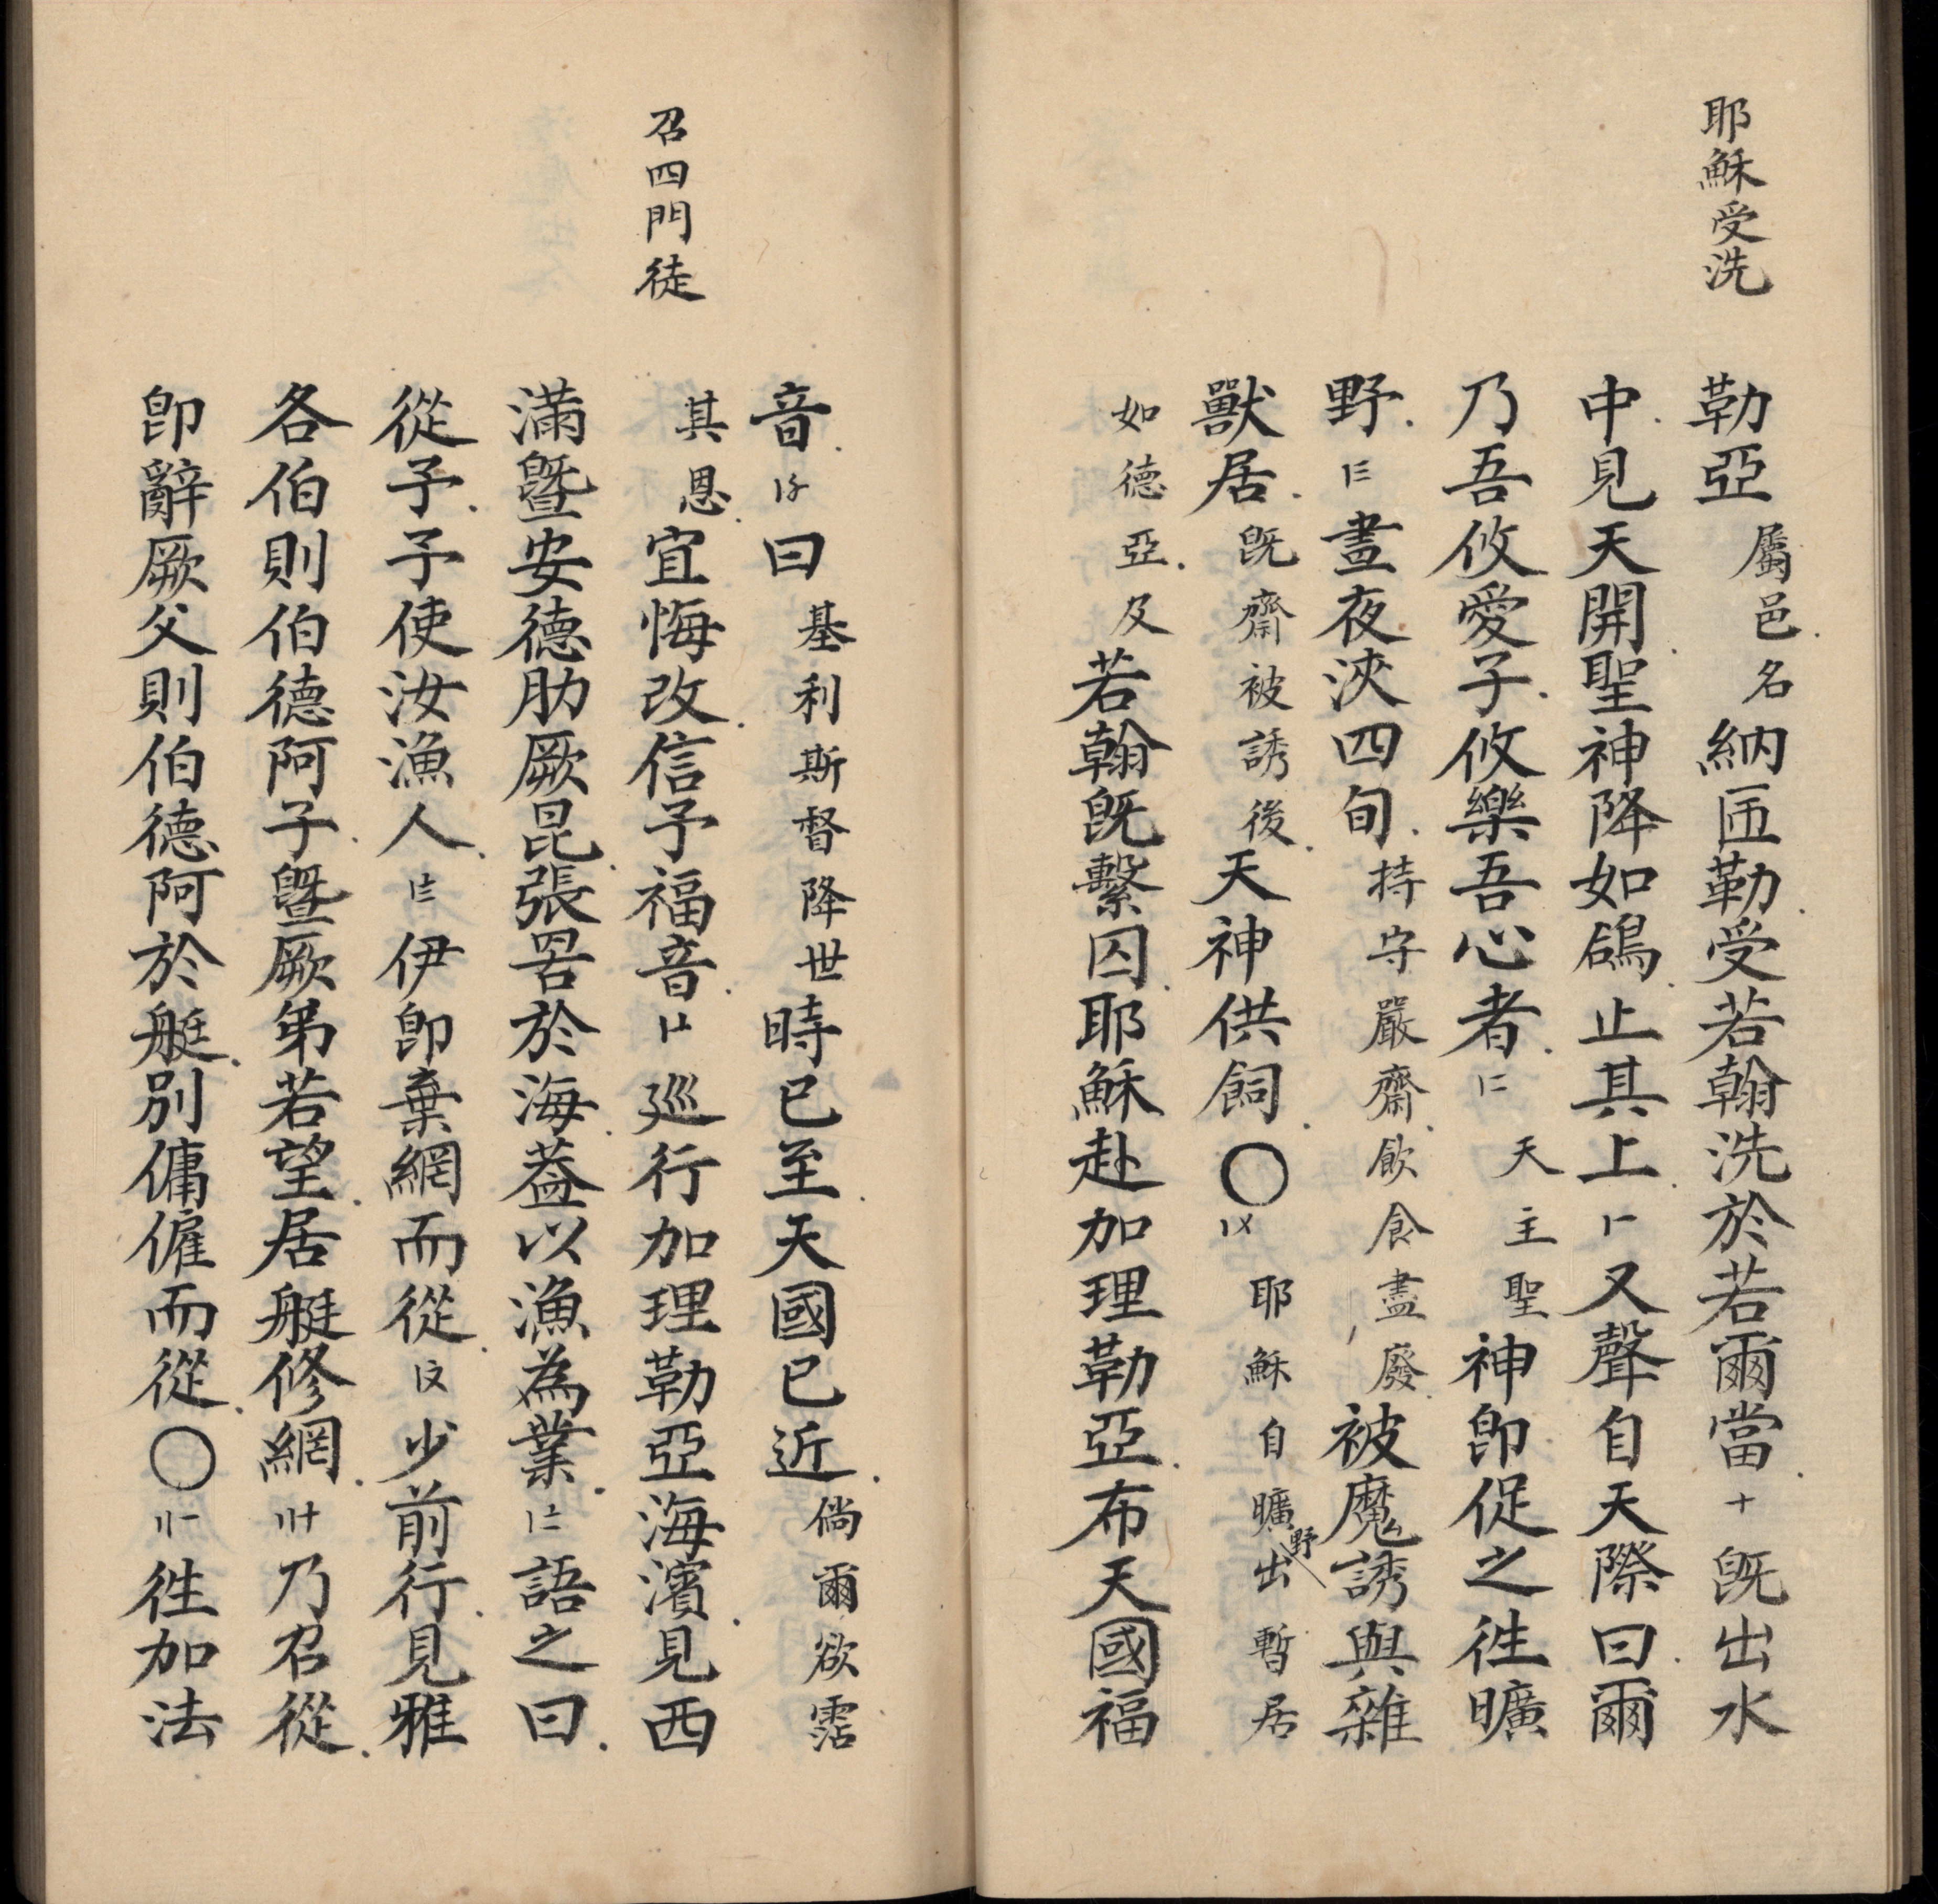 耶穌受洗
勒亞屬邑名納匝勒受若翰洗於若爾當十旣出水
中見天開聖神降如鴿止其上〡一又聲自天際曰爾
乃吾攸愛子攸樂吾心者〡二天主聖神卽促之徃曠
野〡三晝夜浹四旬持守嚴齋飲食盡廢被魔誘與雜
獸居旣齋被誘後天神供飼〇〡〤耶穌自曠野出暫居
如德亞及若翰旣繫囚耶穌赴加理勒亞布天國福
音〡〥曰基利斯督降世時已至天國已近倘爾欲霑
召四門徒
其恩宜悔改信予福音〡〦巡行加理勒亞海濱見西
滿曁安德肋厥昆張罟於海葢以漁為業〡〧語之曰
從予予使汝漁人〡〨伊卽棄網而從〡〩少前行見雅
各伯則伯德阿子曁厥弟若望居艇修網〢十乃召從
卽辭厥父則伯德阿於艇別傭僱而從〇〢一徃加法